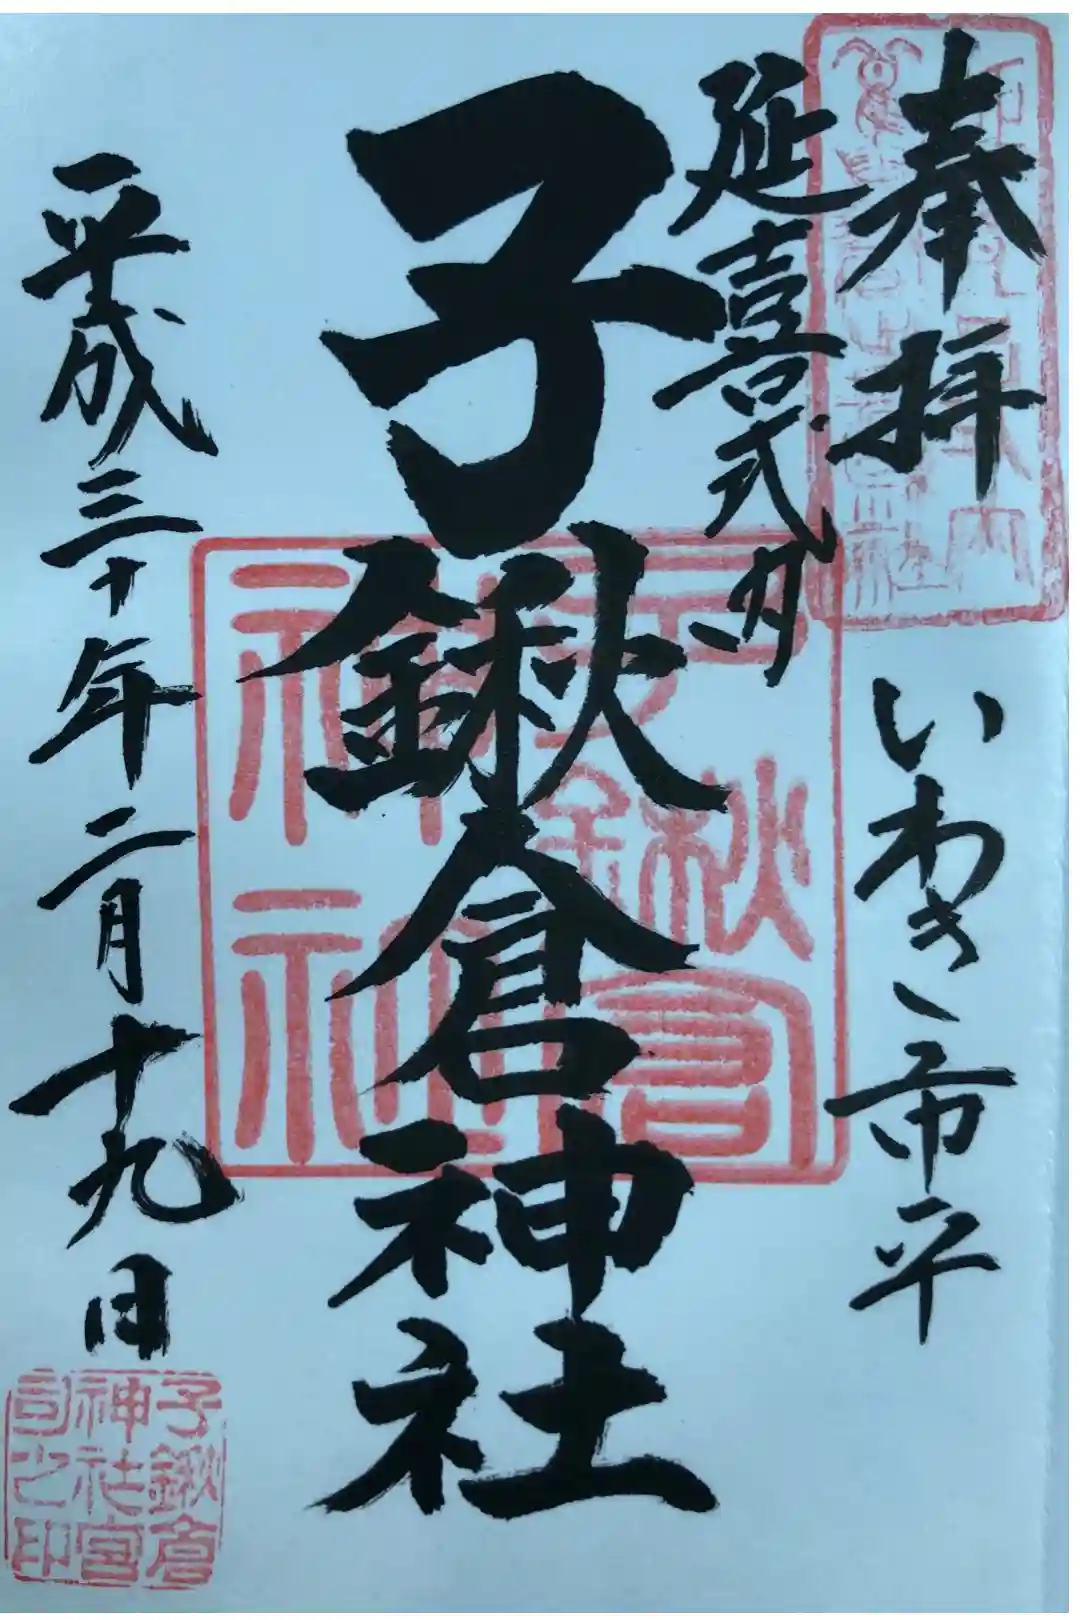 奉拝
いわき市平
延喜式内
子鍬倉神社
平成三十年二月十九日
子鍬倉
神社
子鍬倉
神社宮
司之印